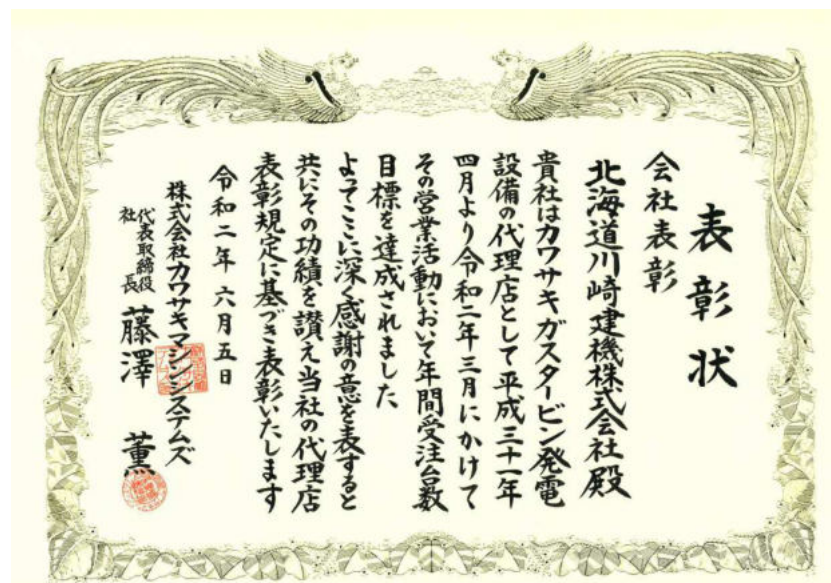 表彰状
会社表彰
北海道川崎建機株式会社殿
貴社はカワサキガスタービン発電
設備の代理店として平成三十一年
四月より令和二年三月にかけて
その営業活動において年間受注台数
目標を達成されました
よってここに深く感謝の意を表すると
共にその功績を讃え当社の代理店
表彰規定に基づき表彰いたします
令和二年六月五日
株式会社カワサキマシンシステムズ
代表取締役
社長
藤澤 薫